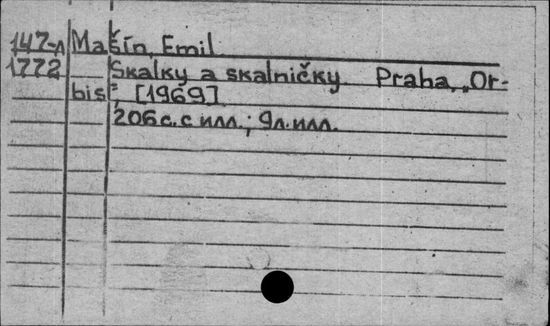 147-л Mašín, Emil
1772 Skalky a skalničky Praha, „Or-
bis“, [1969]
206 с. с илл.; 9 л. илл.